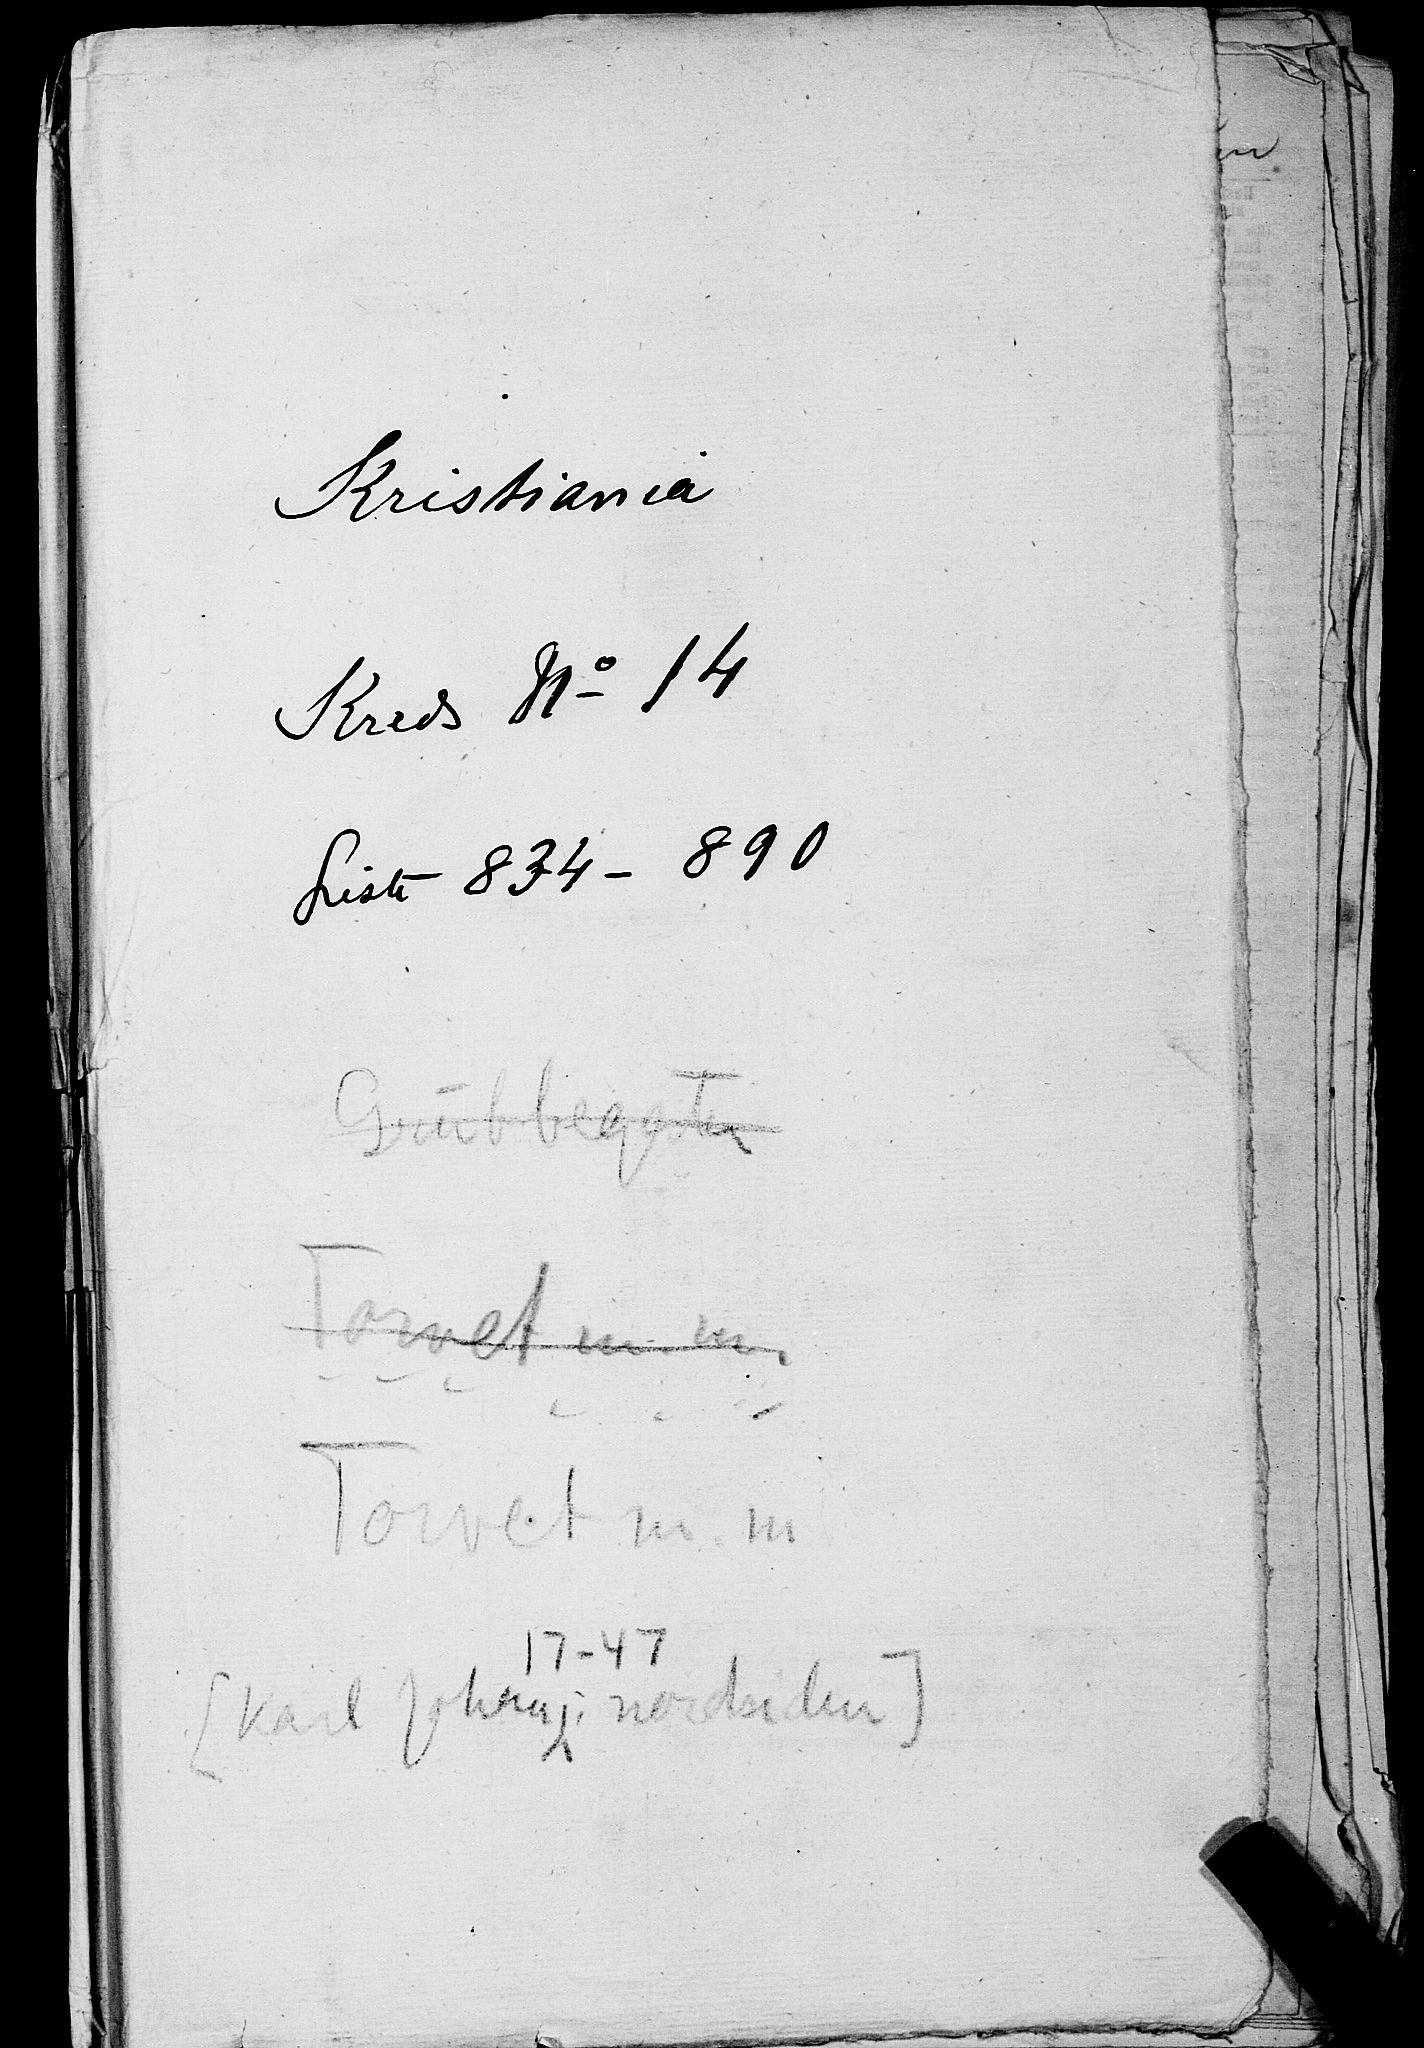 Kristiania
Kreds No 14
Liste 834 - 890
Grubbegaten
Torvet m. m.
Torvet m. m
17-47
[Karl Johansg. nordsiden]